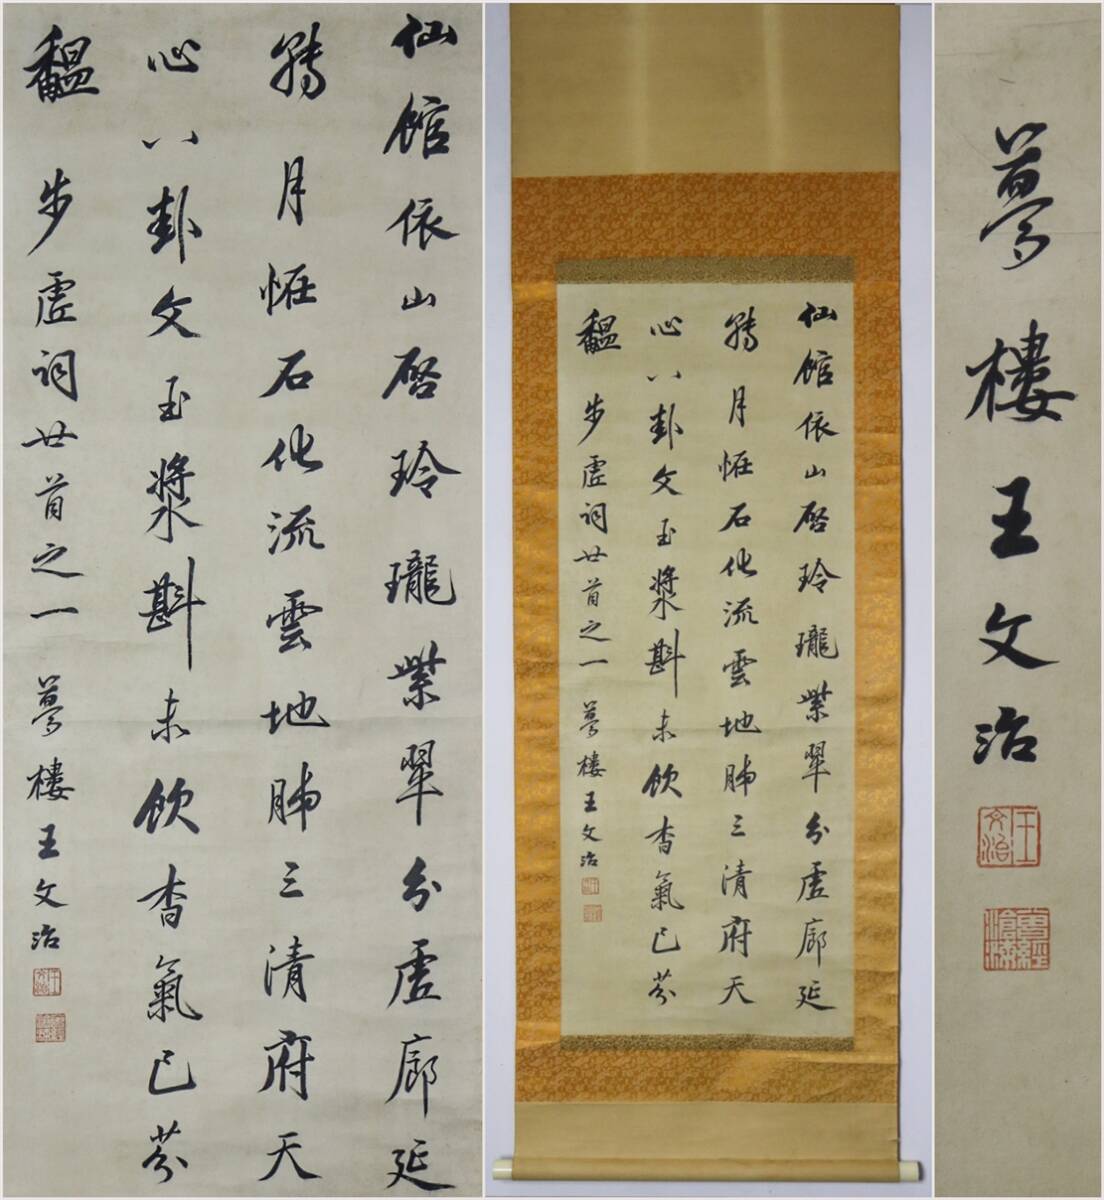 仙館依山啓玲瓏紫翠分虛廊延
轉月恠石化流雲地肺三清府天
心八卦文玉漿斟未飲香氣已芬
馧 步虛詞廿首之一 夢樓王文治
仙館依山啓玲瓏紫翠分虛廊延
轉月恠石化流雲地肺三清府天
心八卦文玉漿斟未飲香氣已芬
馧 步虛詞廿首之一 夢樓王文治
夢樓王文治
王文治
曾經滄海